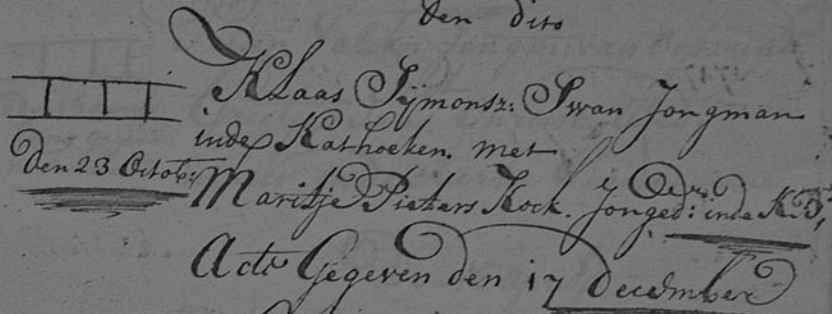 den dito
Klaas Sijmonsz: Swan Jongman
inde Kathoeken. met
den 23 Octob:
Maritje Pieters Kock. Jonged: inde
Acte Gegeven den 17 december